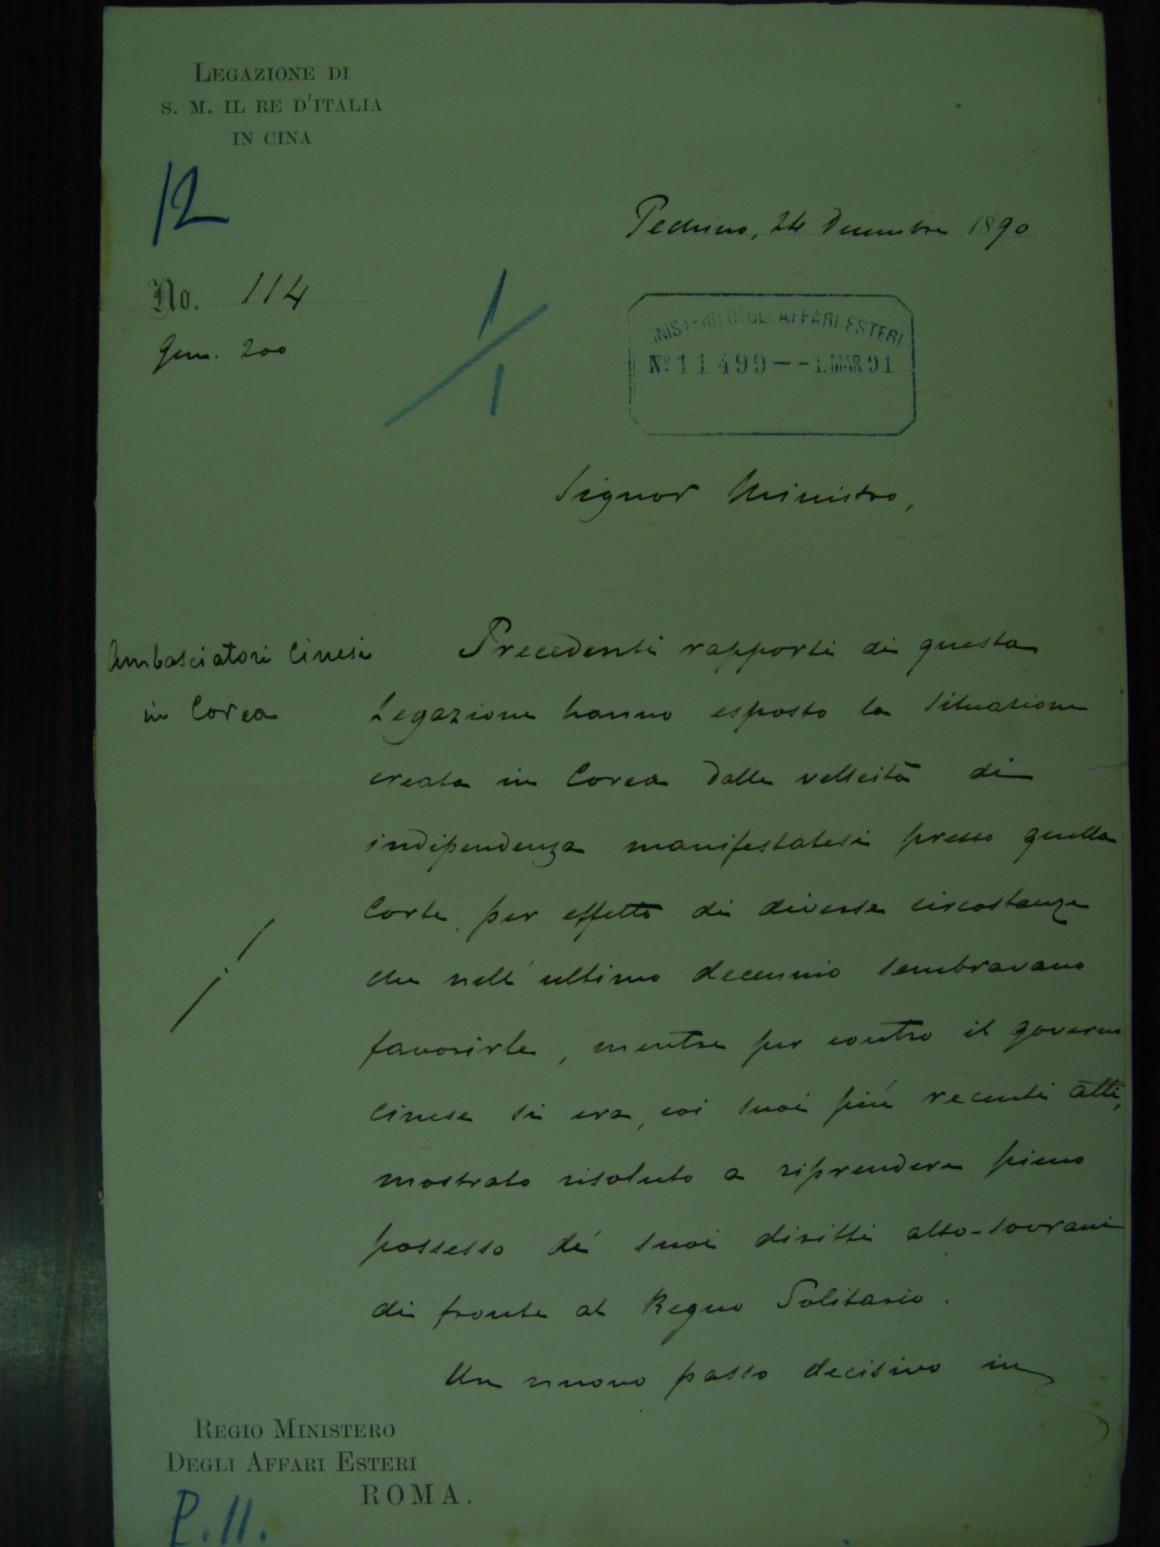 LEGAZIONE DI
S. M. IL RE D'ITALIA
IN CINA
12
No. 114
Gen. 200
1/1
Pechino, 24 Decembre 1890
MINISTERO DEGLI AFFARI ESTERI
No. 11499 -- 1. MAR 91
Signor Ministro,
Ambasciatori Cinesi
in Corea
Precedenti rapporti di questa
Legazione hanno esposto la situazione
creata in Corea dalle velleità di
indipendenza manifestatesi presso quella
Corte, per effetto di diverse circostanze
che nell'ultimo decennio sembravano
favorirle, mentre per contro il governo
cinese si era, coi suoi più recenti atti,
mostrato risoluto a riprendere pieno
possesso de' suoi diritti alto-sovrani
di fronte al Regno Solitario.
Un nuovo passo decisivo in
REGIO MINISTERO
DEGLI AFFARI ESTERI
ROMA.
P. 11.